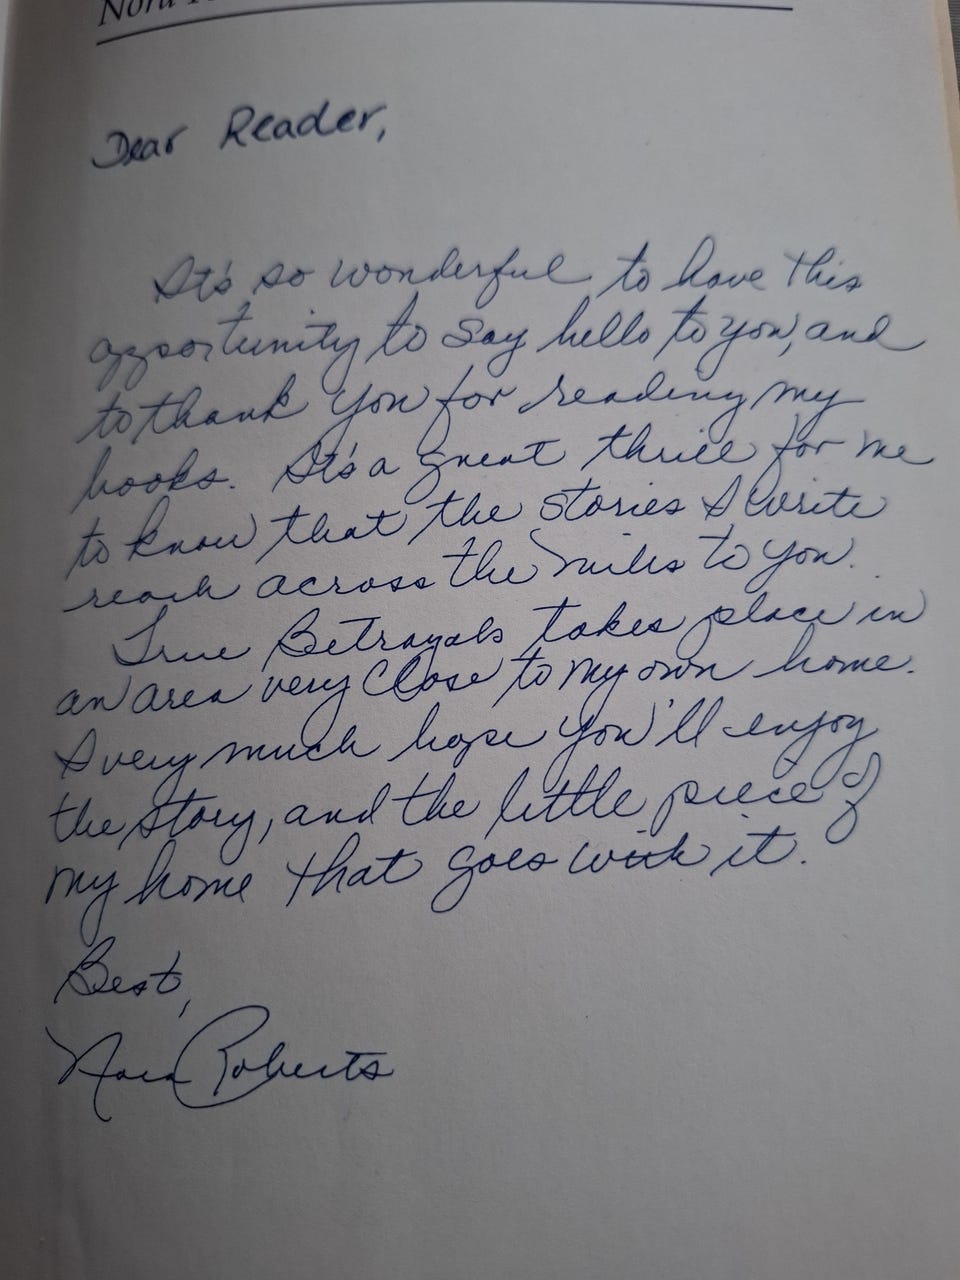 Nora
Dear Reader,
It's so wonderful to have this
opportunity to say hello to you, and
to thank you for reading my
books. It's a great thrill for me
to know that the stories I write
reach across the miles to you.
True Betrayals takes place in
an area very close to my own home.
I very much hope you'll enjoy
the story, and the little piece of
my home that goes with it.
Best,
Nora Roberts